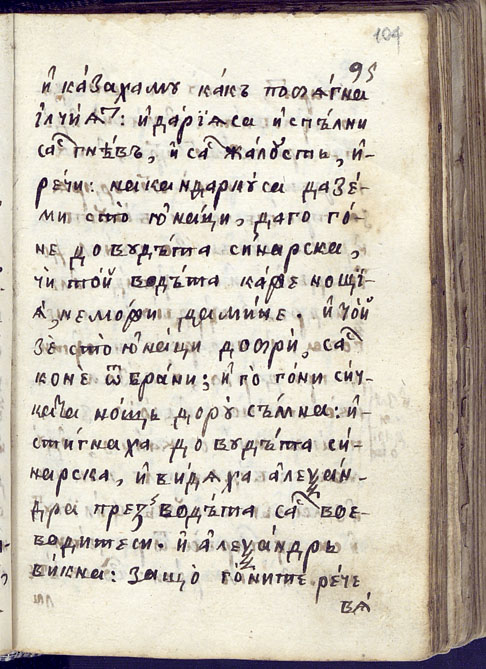 104
95
и҆ ка́захаму ка́къ побѧ́гна
і҆лчїѧⷮ: и҆ да́рїѧса и҆спъ́лни
саⷭ҇ гнѣ́въ, и҆ саⷭ҇ жа́лость, и҆-
ре́чи: на ка́ндаркꙋса да зе́-
ми сто̀ ю҆на́ци, да го го́-
не до вудѣ́та сина́рска,
чи то́й водѣ́та ка́
ѧ҆, не мо́ да ми́не. и҆ то́й
зѐ сто̀ ю҆на́ци добрѝ, саⷭ҇
коне ѿбрани; и҆ го̀ го́ни си́ч-
ката но́щь дорꙋ̀ съ́мна: и҆-
сти́гнаха до вудѣ́та си-
на́рска, и҆ ви́дѧха а҆леѯа́н-
дра преⷥ водѣ́та саⷭ҇ вое-
во́дитеси. и҆ а҆леѯа́ндрь
ви́кна: защо̀ го́ните ре́че
вѧ́